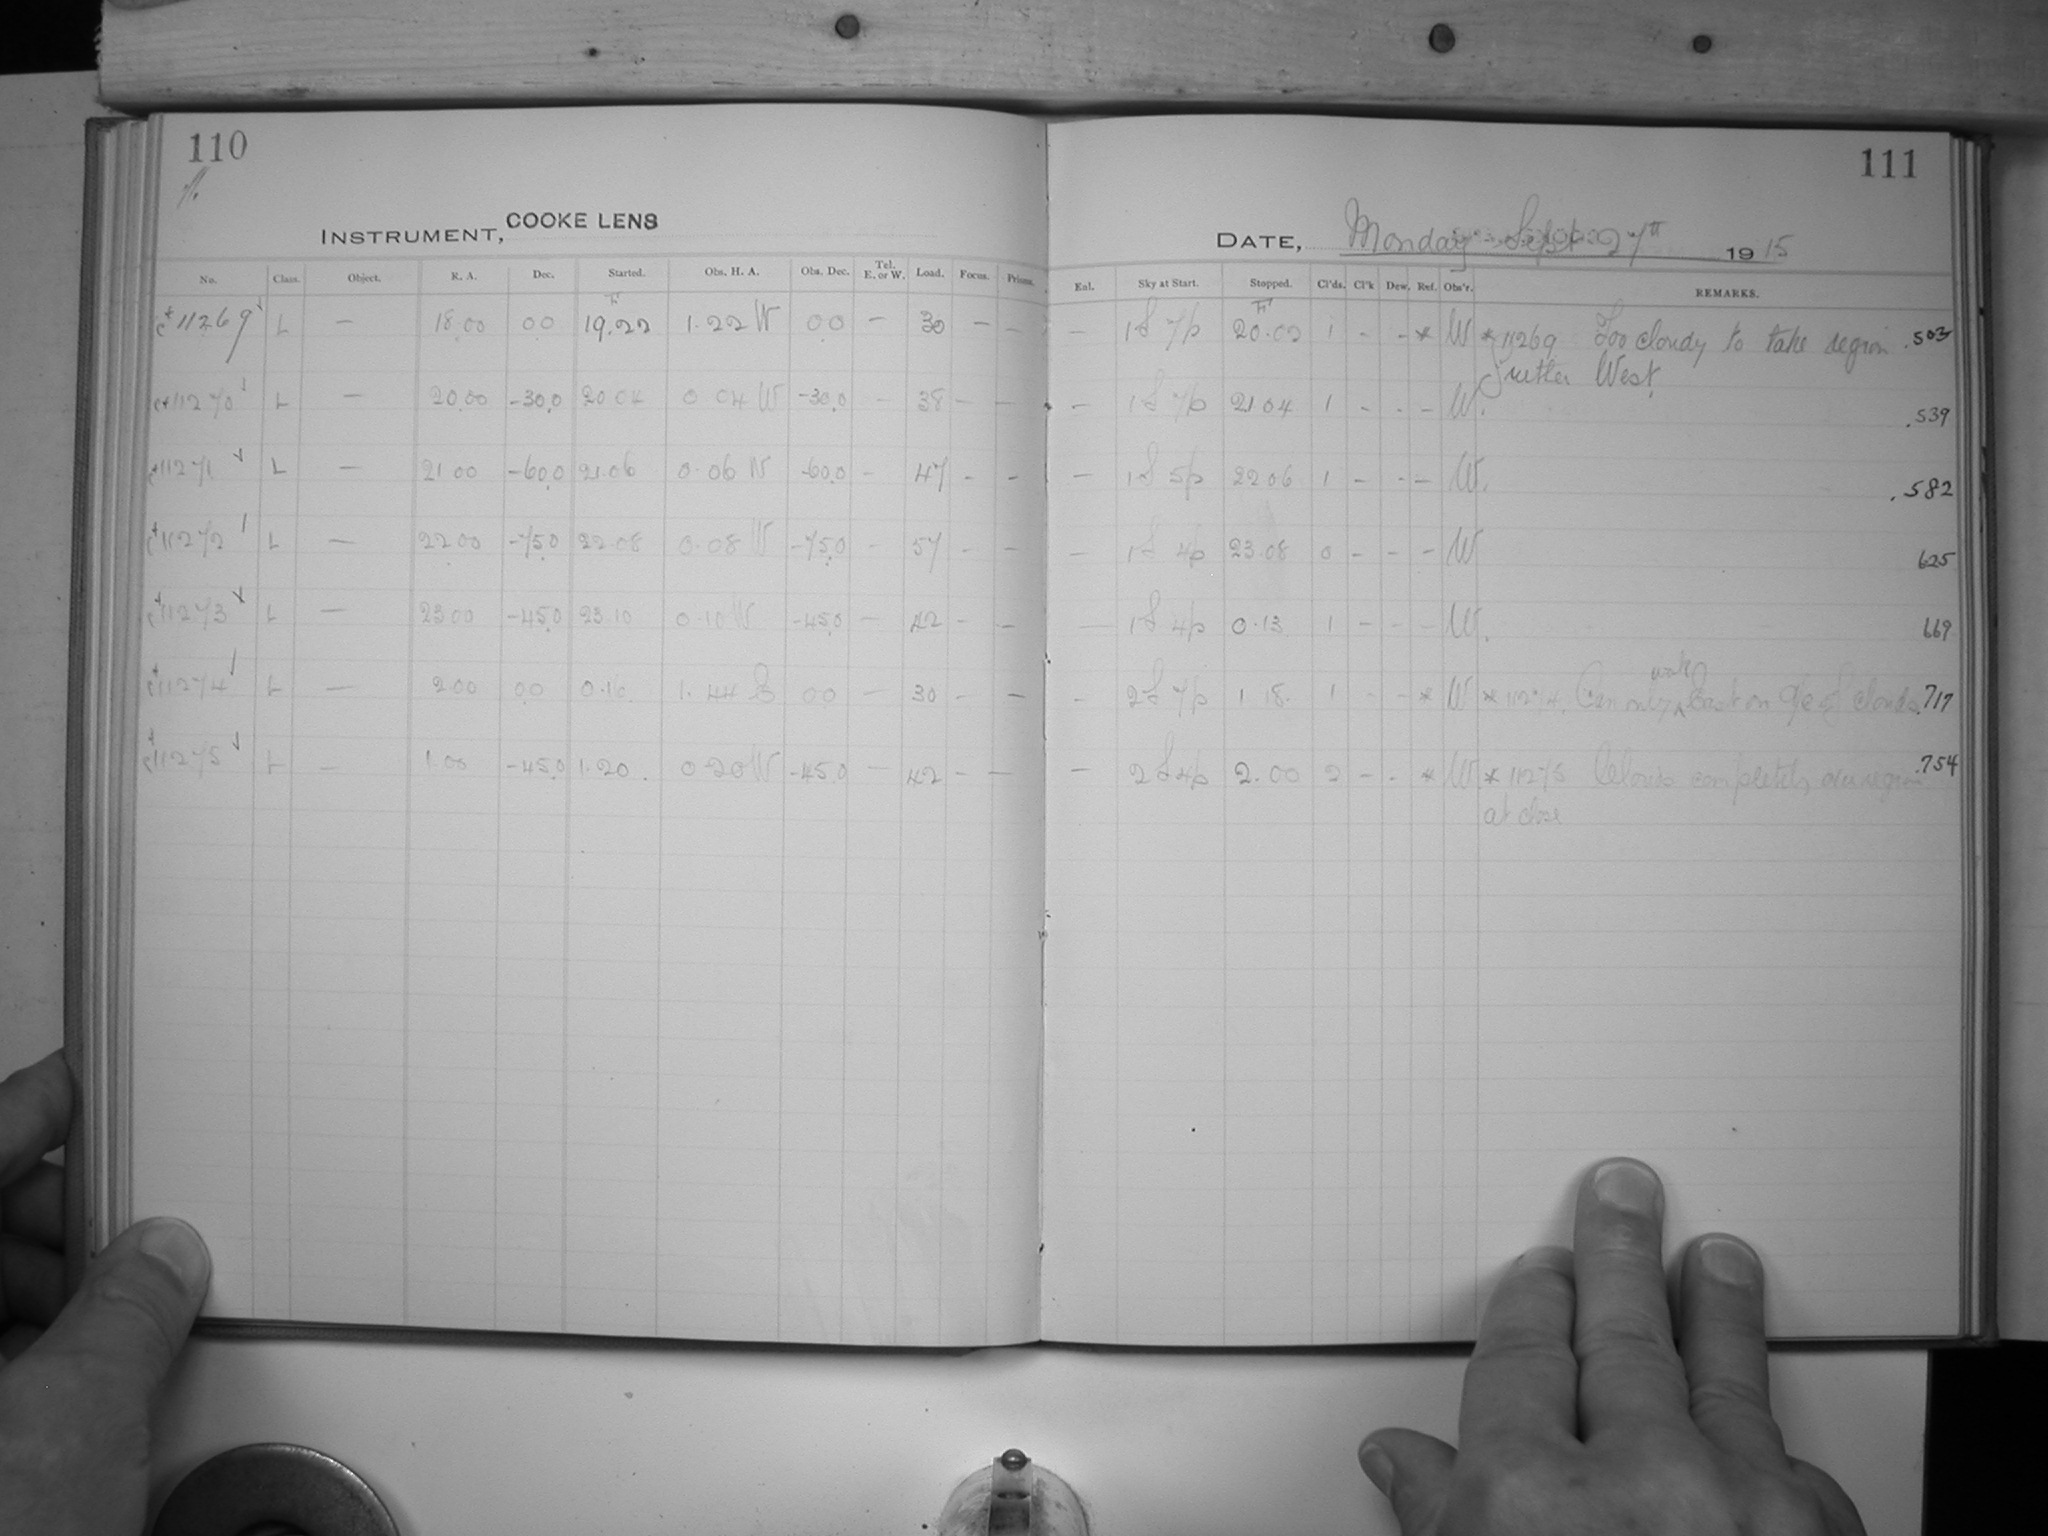 110
INSTRUMENT, COOKE LENS
No. Class. Object. R. A. Dec. Started. Obs. H. A. Obs. Dec. Tel. E. or W. Load. Focus. Prisms.
11269 L — 18.00 00 19.22 1.22 W 00 — 30 — —
11270 L — 20.00 -30.0 20 04 0 04 W -30.0 — 38 — —
11271 L — 21 00 -60.0 21.06 0.06 W -60.0 — 47 - -
11272 L — 22 00 -75.0 22.08 0.08 W -75.0 - 57 - -
11273 L — 23 00 -45.0 23.10 0.10 W -45.0 — 42 - -
11274 L — 2.00 00 1.44 E 00 — 30 - -
11275 L — 1.00 -45.0 1.20 0 20 W -45.0 — 42 - —
111
DATE, Monday Sept 27th 1915
Eal. Sky at Start. Stopped. Cl'ds. Cl'k Dew. Ref. Obs'r. REMARKS.
— 1S 7p 20.02 1 - - * W * 11269 Too cloudy to take region .503
further West.
— 1S 7p 21 04 1 - - - W. .539
— 1S 5p 22 06 1 - - - W. .582
— 1S 4p 23.08 0 - - - W 625
— 1S 4p 0.13 1 - - - W. 669
- 2S 7p 1 18. 1 - - * W * 11274. Can only work East on a/c of clouds .717
- 2S 4p 2.00 2 - - * W * 11275 Clouds completely over region .754
at close